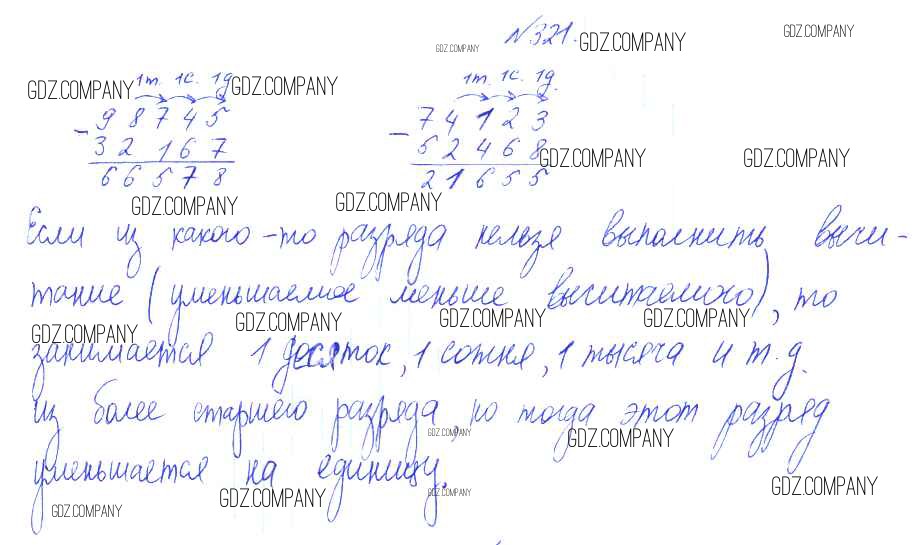 №321.
GDZ.COMPANY GDZ.COMPANY GDZ.COMPANY
1т. 1с. 1д 1т. 1с. 1д.
GDZ.COMPANY GDZ.COMPANY
98745 74123
- 32167 - 52468
66578 21655
GDZ.COMPANY GDZ.COMPANY
GDZ.COMPANY GDZ.COMPANY
Если из какого-то разряда нельзя выполнить вычи-
тание (уменьшаемое меньше вычитаемого), то
GDZ.COMPANY GDZ.COMPANY GDZ.COMPANY GDZ.COMPANY
занимается 1 десяток, 1 сотня, 1 тысяча и т.д.
из более старшего разряда, но тогда этот разряд
GDZ.COMPANY GDZ.COMPANY
уменьшается на единицу.
GDZ.COMPANY GDZ.COMPANY GDZ.COMPANY GDZ.COMPANY